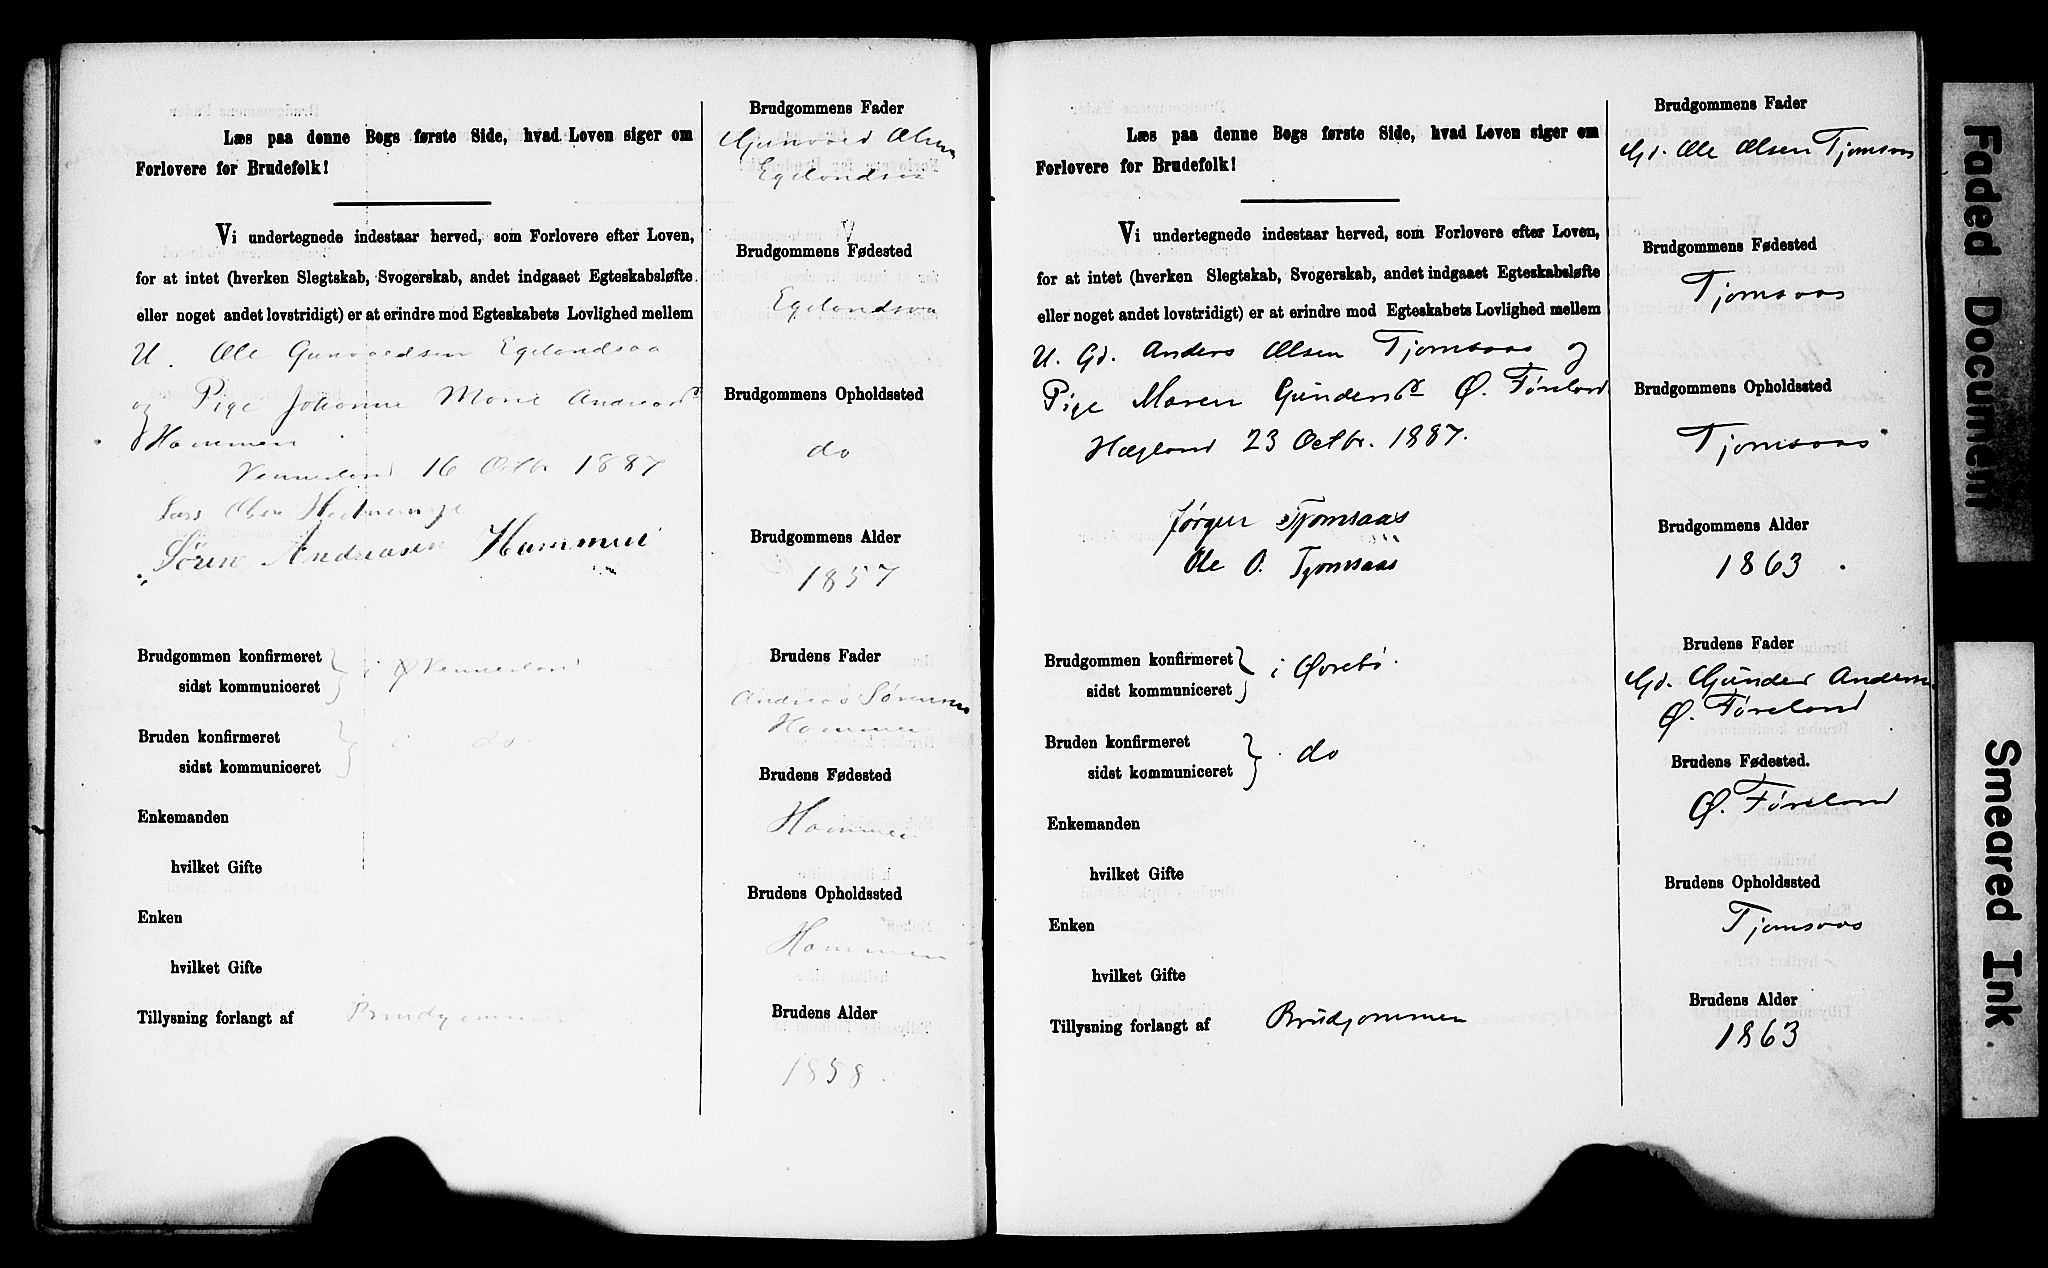 Læs paa denne Bogs første Side, hvad Loven siger om
Forlovere for Brudefolk!
Vi undertegnede indestaar herved, som Forlovere efter Loven,
for at intet (hverken Slegtskab, Svogerskab, andet indgaaet Egteskabsløfte
eller noget andet lovstridigt) er at erindre mod Egteskabets Lovlighed mellem
U. Ole Gunvaldsen Egelandsaa
og Pige Johanne Marie Andreasdr
Hammen
Vennesland 16 Octbr 1887
Lars Olsen
Søren Andreasen Hammen
Brudgommen konfirmeret
sidst kommuniceret
i Ø Vennesland
Bruden konfirmeret
sidst kommuniceret
i do
Enkemanden
hvilket Gifte
Enken
hvilket Gifte
Tillysning forlangt af Brudgommen
Brudgommens Fader
Gunvald Olsen
Egelandsaa
Brudgommens Fødested
Egelandsaa
Brudgommens Opholdssted
do
Brudgommens Alder
1857
Brudens Fader
Andreas Sørensen
Hammen
Brudens Fødested
Hammen
Brudens Opholdssted
Hammen
Brudens Alder
1858
Læs paa denne Bogs første Side, hvad Loven siger om
Forlovere for Brudefolk!
Vi undertegnede indestaar herved, som Forlovere efter Loven,
for at intet (hverken Slegtskab, Svogerskab, andet indgaaet Egteskabsløfte
eller noget andet lovstridigt) er at erindre mod Egteskabets Lovlighed mellem
U. Gd. Anders Olsen Tjomsaas og
Pige Maren Gundersdr Ø. Føreland
Hægeland 23 Octbr. 1887.
Jørgen Tjomsaas
Ole O. Tjomsaas
Brudgommen konfirmeret
sidst kommuniceret
i Øvrebø.
Bruden konfirmeret
sidst kommuniceret
do
Enkemanden
hvilket Gifte
Enken
hvilket Gifte
Tillysning forlangt af Brudgommen
Brudgommens Fader
Gd. Ole Olsen Tjomsaas
Brudgommens Fødested
Tjomsaas
Brudgommens Opholdssted
Tjomsaas
Brudgommens Alder
1863
Brudens Fader
Gd. Gunder Andersn.
Ø. Føreland
Brudens Fødested.
Ø. Føreland
Brudens Opholdssted
Tjomsaas
Brudens Alder
1863
Faded Document
Smeared Ink.